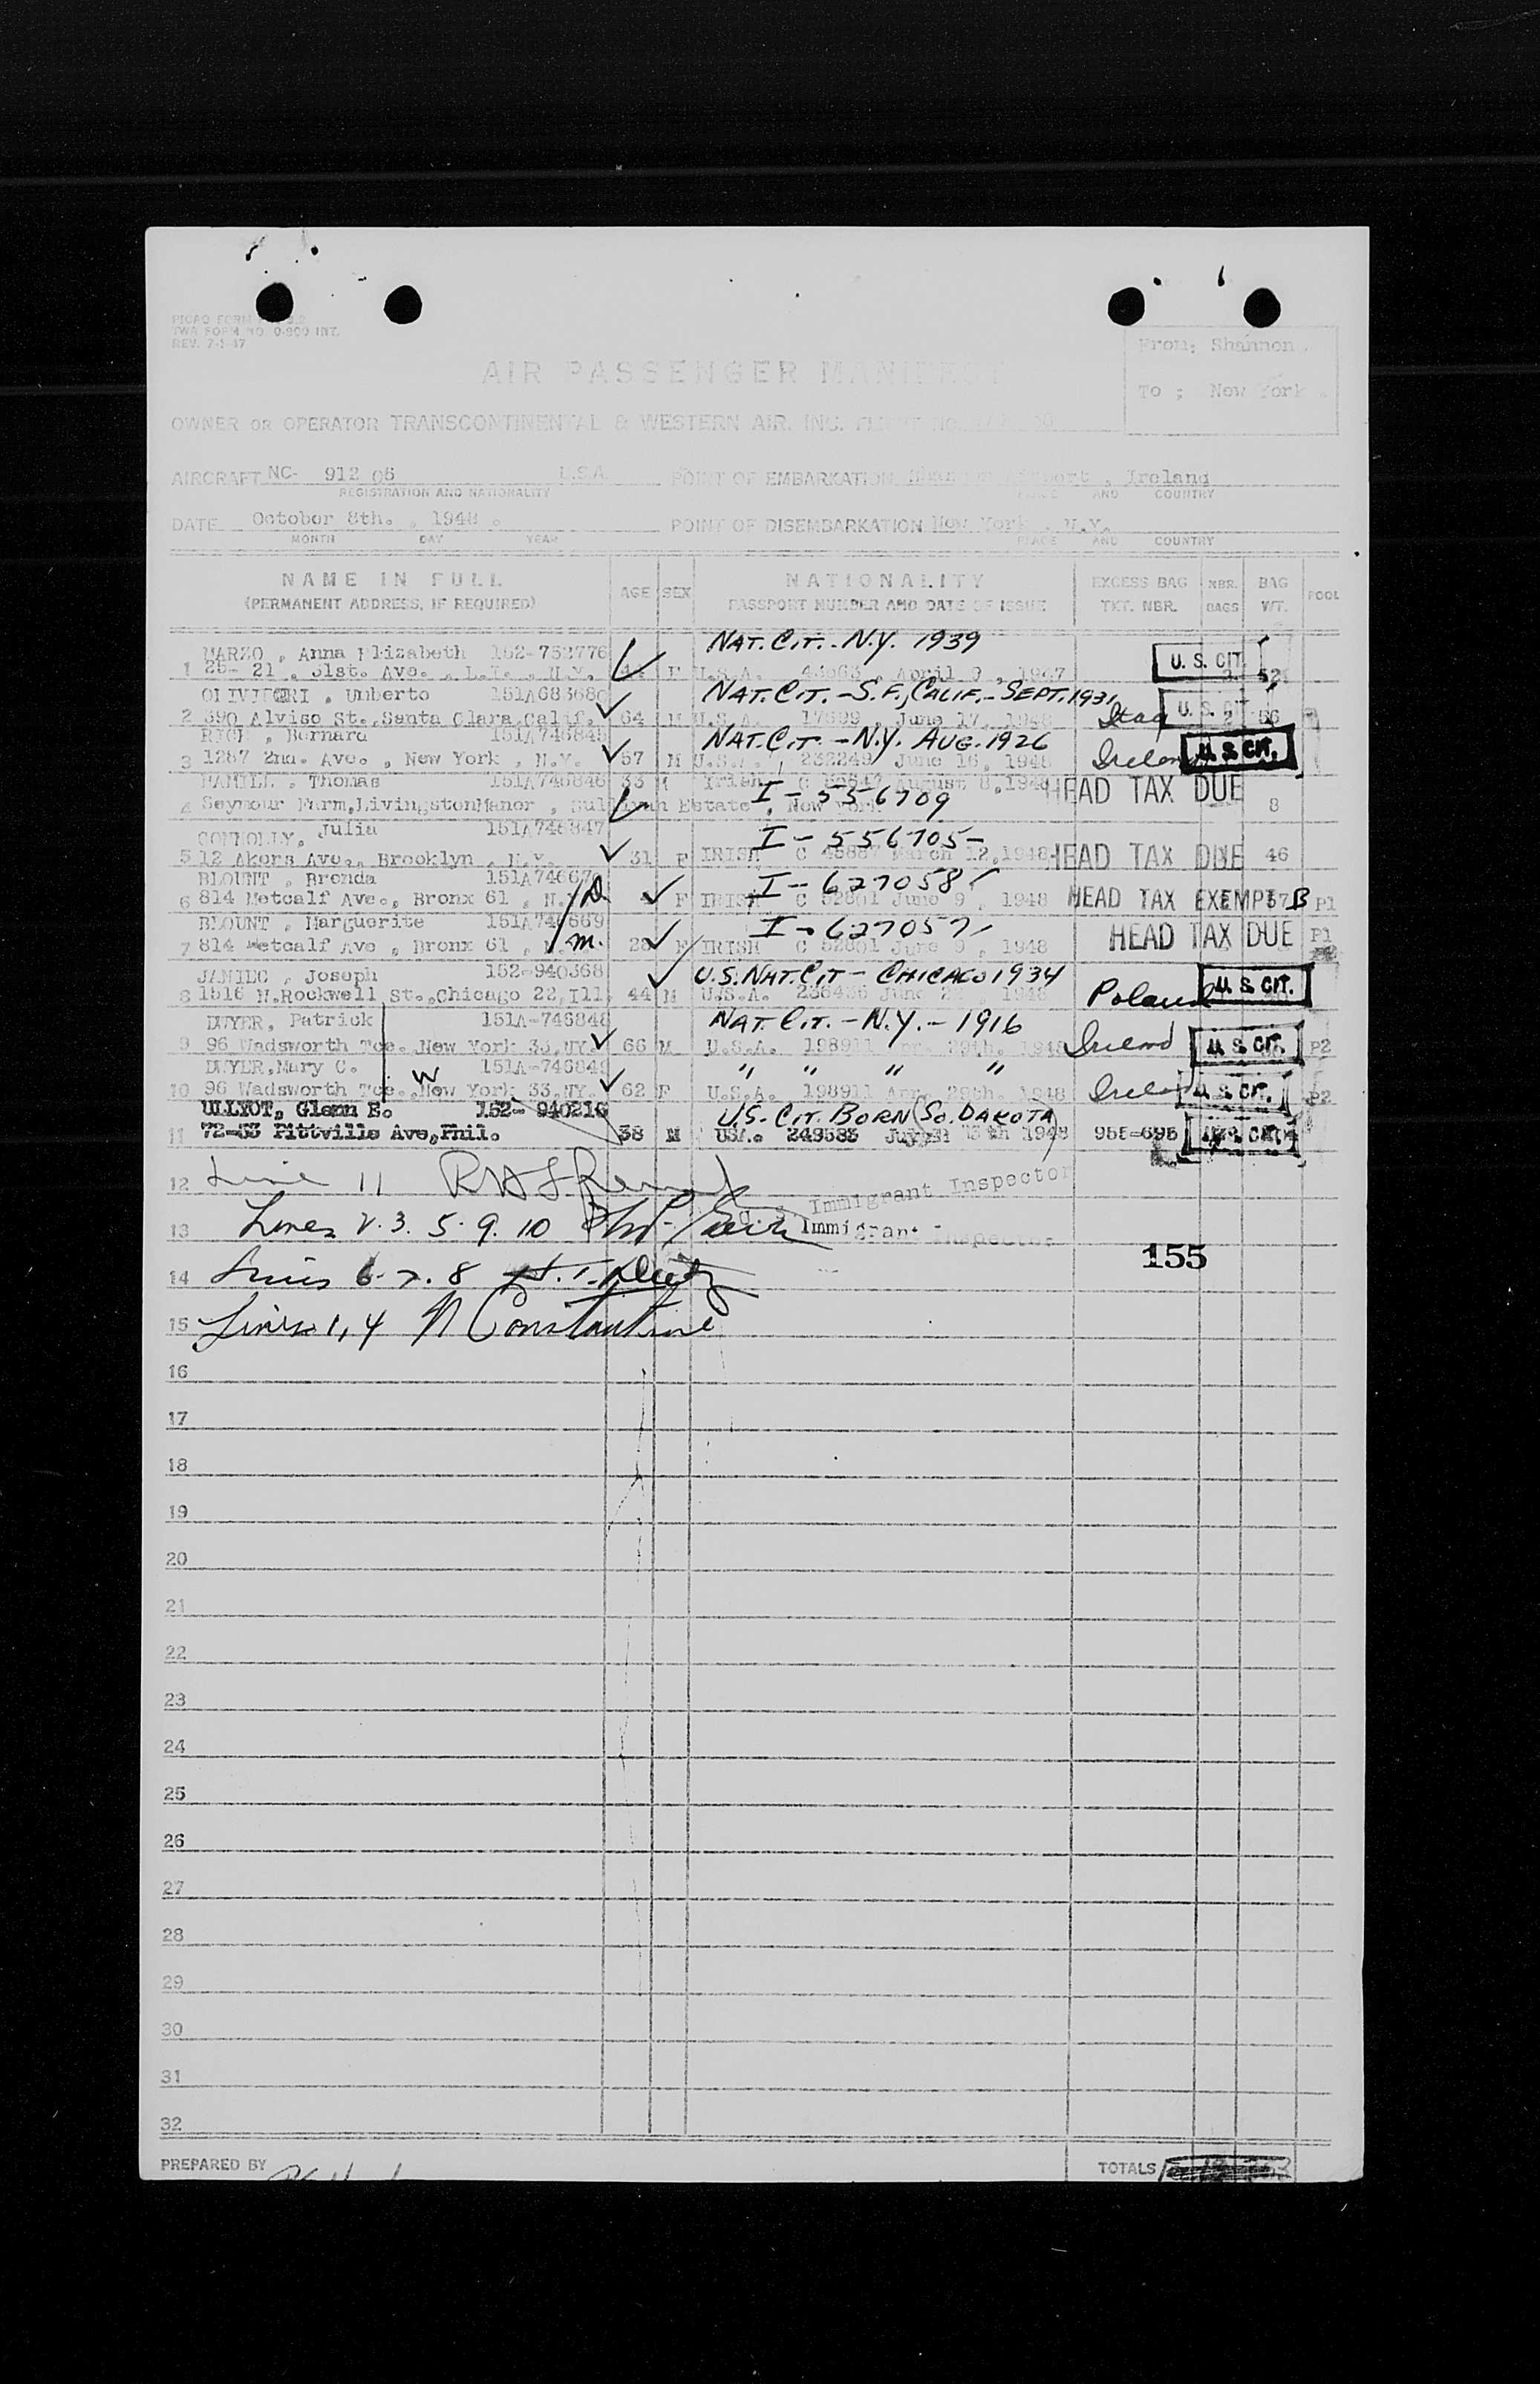 TWA FORM NO. 0-900 INT.
REV. 7-1-47
From; Shannon.
AIR PASSENGER MANIFEST
To ; New York.
OWNER OR OPERATOR TRANSCONTINENTAL & WESTERN AIR, INC. FLIGHT NO.
AIRCRAFT NC- 912 06 U.S.A. POINT OF EMBARKATION Shannon Airport, Ireland
REGISTRATION AND NATIONALITY PLACE AND COUNTRY
DATE October 8th., 1948. POINT OF DISEMBARKATION New York. N.Y.
MONTH DAY YEAR PLACE AND COUNTRY
NAME IN FULL AGE SEX NATIONALITY EXCESS BAG NBR. BAG POOL
(PERMANENT ADDRESS, IF REQUIRED) PASSPORT NUMBER AND DATE OF ISSUE TKT. NBR. BAGS WT.
NAT. CIT. - N.Y. 1939
, Anna Elizabeth 152-752776 U.S. CIT.
1 25-21, 31st. Ave., L.I., N.Y. F U.S.A. April 9, 1947 52
NAT. CIT. - S.F., CALIF. - SEPT. 1931
, Umberto 151A683680 U.S. CIT.
2 390 Alviso St., Santa Clara, Calif. 64 M U.S.A. 17699, June 17, 1948 Italy 2 56
, Bernard 151A746845 NAT. CIT. - N.Y. AUG. 1926
3 1287 2nd. Ave., New York, N.Y. 57 M U.S.A. 232249 June 16, 1948 Ireland U.S. CIT.
, Thomas 151A746846 33 M Irish August 8, 1948 HEAD TAX DUE
4 Seymour Farm, Livingston Manor, Sullivan Estate, New York I-556709 8
CONNOLLY, Julia 151A746847 I-556705
5 12 Akers Ave., Brooklyn, N.Y. 31 F IRISH C 45887 March 12, 1948 HEAD TAX DUE 46
BLOUNT, Brenda I-627058
6 814 Metcalf Ave., Bronx 61, N.Y. F IRISH C 52801 June 9, 1948 HEAD TAX EXEMPT P1
BLOUNT, Marguerite 151A746669 I-627057
7 814 Metcalf Ave, Bronx 61, m. 28 F IRISH C 52801 June 9, 1948 HEAD TAX DUE P1
, Joseph 152-940368 U.S. NAT. CIT - CHICAGO 1934
8 1516 N. Rockwell St., Chicago 22, Ill. 44 M U.S.A. June 1948 Poland U.S. CIT.
DWYER, Patrick 151A-746848 NAT. CIT. - N.Y. - 1916
9 96 Wadsworth Tce. New York 33, NY. 66 M U.S.A. 198911 Apr. 29th. 1948 Ireland U.S. CIT. P2
DWYER, Mary C. W 151A-746849 " " " "
10 96 Wadsworth Tce. New York 33, NY. 62 F U.S.A. 198911 Apr. 29th. 1948 Ireland U.S. CIT. P2
ULLYOT, Glenn E. 152-940216 U.S. CIT. BORN (SO. DAKOTA)
11 Pittville Ave, Phil. 38 M USA. 249583 1948 955-695 U.S. CIT.
12 Line 11 Immigrant Inspector
13 Lines 2. 3. 5. 9. 10 Immigrant Inspector
155
14 Lines 6. 7. 8
15 Lines 1, 4 N Constantine
16
17
18
19
20
21
22
23
24
25
26
27
28
29
30
31
32
PREPARED BY TOTALS